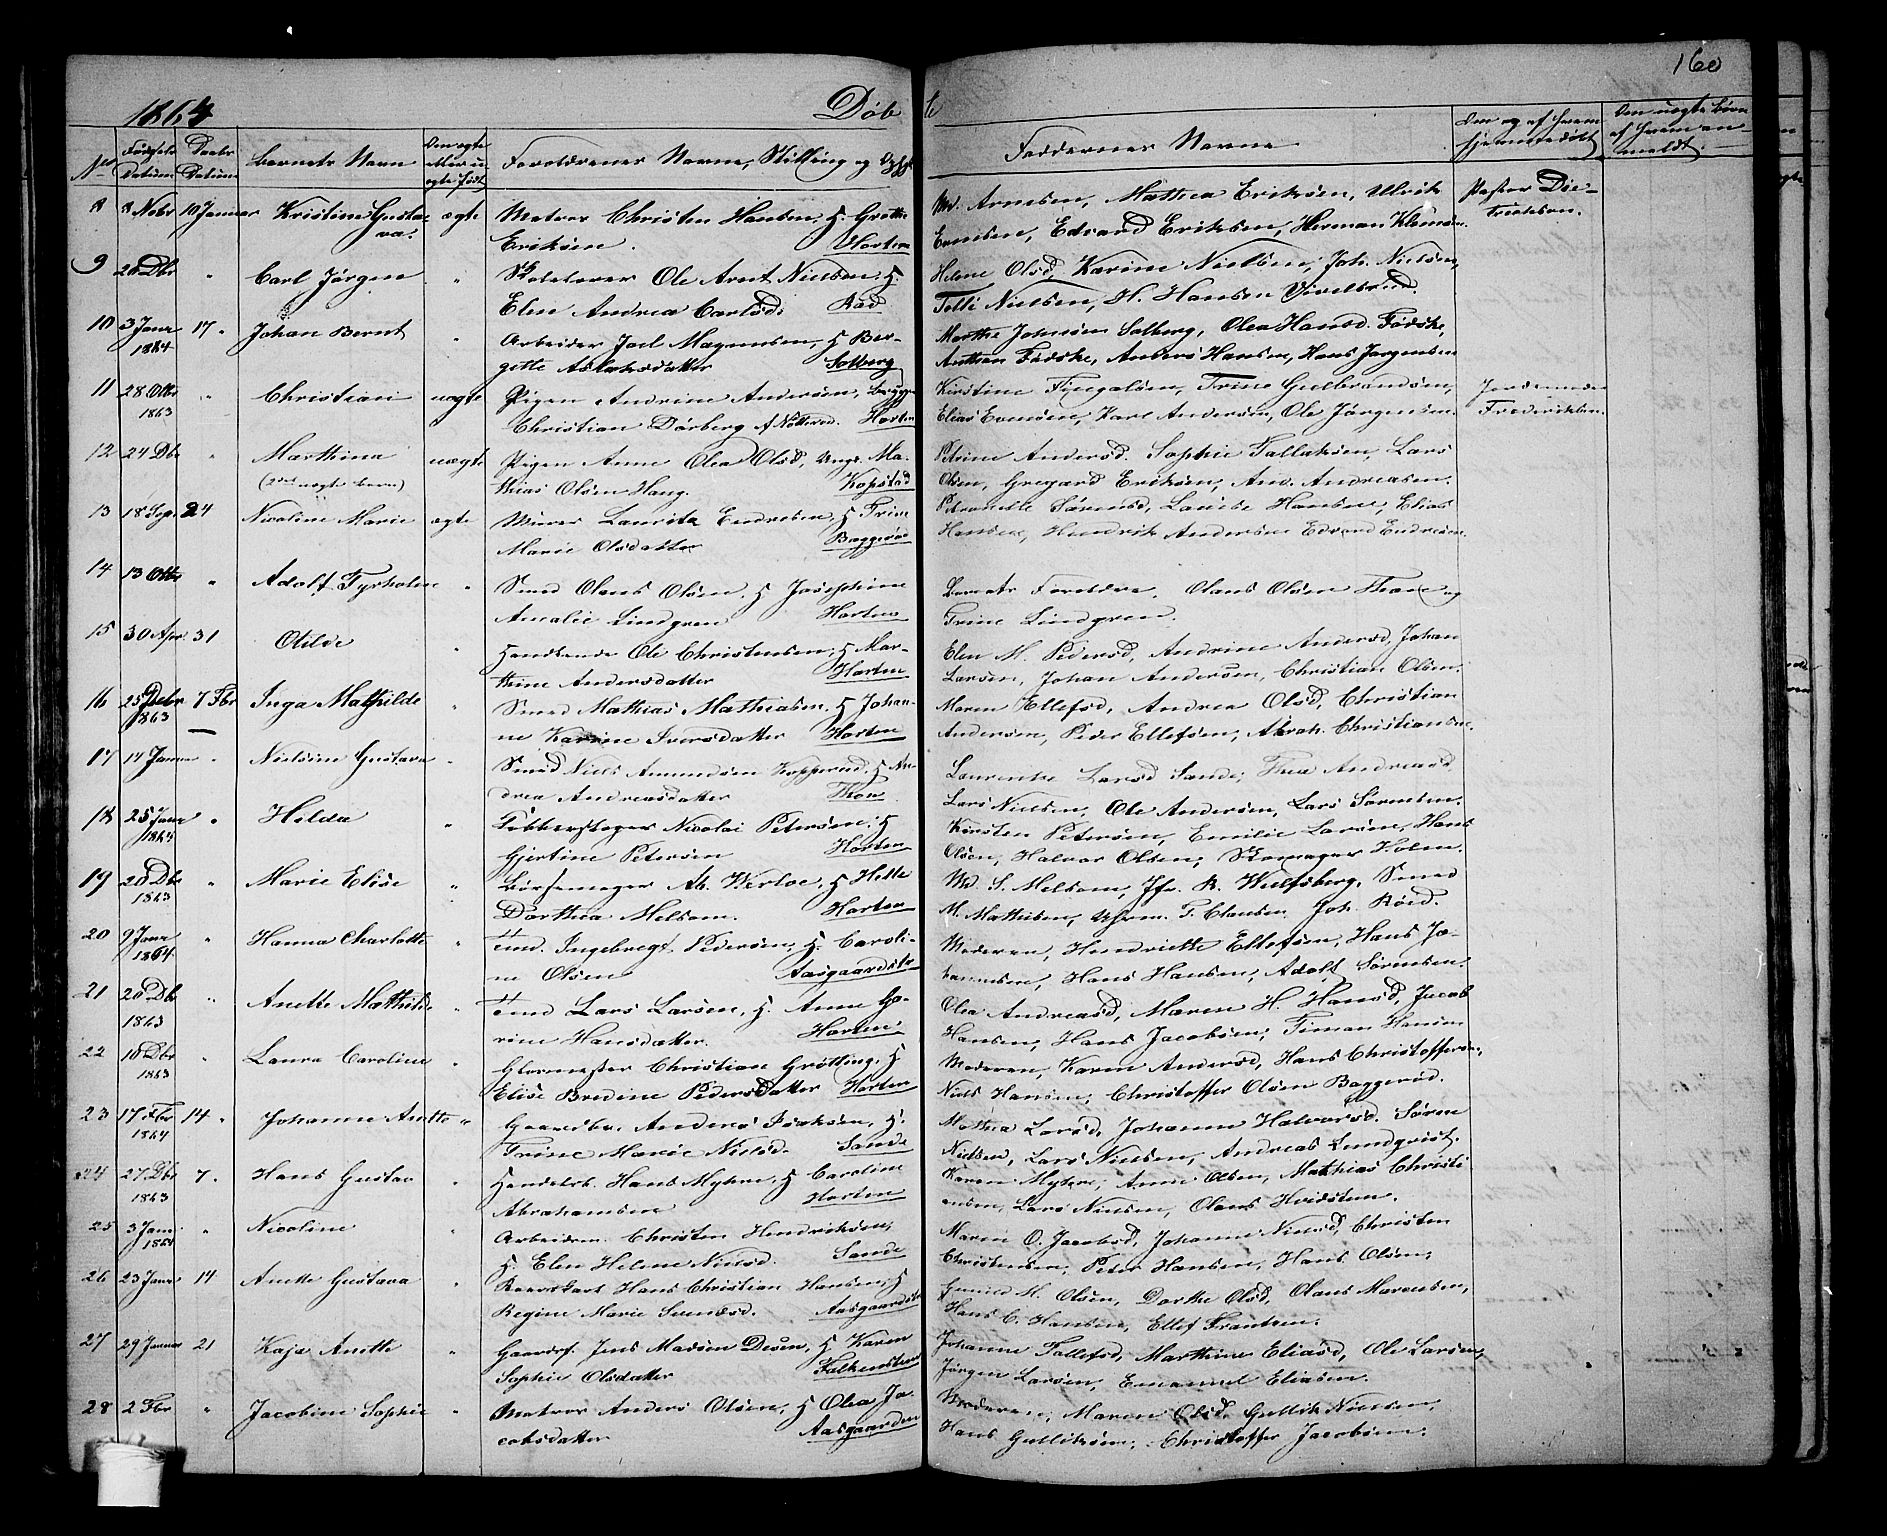 160
1864 Døbte
No Fødsels Datum Daabs Datum Barnets Navn Om ægte eller uægte født Forældrenes Navne, Stilling og Faddernes Navne Om og af hvem hjemmedøbt Om uægte børn af hvem anmeldt.
8 8 Nobr 10 Januar Kristine Gustava. ægte Matros Christen Hansen, H. Grethe
Eriksen. Horten
Md. Arnesen, Mathea Eriksen, Ulrik
Evensen, Edvard Eriksen, Herman
Pastor Die-
trichson.
9 28 Dbr " Carl Jørgen " Ole Arnt Nielsen, H.
Elen Andrea Carlsd.
Helene Olsd, Karine Nielsen, Joh. Nielsen,
Nielsen, H. Hansen
10 3 Janr 1864 17 " Johan Bernt " Arbeider Joel Magnussen, H Ber-
gette Aslaksdatter Solberg
Marthe Johnsen Solberg, Olea Hansd.
Anders Hansen, Hans Jørgensen
11 28 Otbr 1863 " Christian uægte Pigen Andrine Andersen,
Christian Dørberg af Nøtterød. Horten
Kirstine Trine Gulbrandsen,
Elias Evensen, Karl Andersen, Ole Jørgensen.
Jordemoder
Frederiksen.
12 24 Dbr " Marthina uægte Pigen Anne Olea Olsd, Ungk. Ma-
(2det uægte barn) thias Olsen Haug. Kopstad
Petrine Andersd. Sophie Lars
Olsen, Gregard Eriksen, And. Andreasen.
13 18 Sep. 24 Nicoline Marie ægte Murer Lauritz Endresen, H Trine
Marie Olsdatter Baggerød
Petronelle Sørensd, Louise Hansen, Elias
Hansen, Hendrik Andersen Edvard Endresen.
14 13 Otbr " Adolf Tyrholm " Smed Olaus Olsen, H Josephine
Amalie Lindgren Horten
Barnets Forældre. Olaus Olsen og
Trine Lindgren.
15 30 Apr. 31 Otilde " Ole Christensen, H Mar-
thine Andersdatter Horten
Elen M. Pedersd, Andrine Andersd, Johan
Larsen, Johan Andersen, Christian Olsen.
16 25 Debr 1863 7 Fbr Inga Mathilde " Smed Mathias Mathiasen, H Johan-
ne Karine Iversdatter Horten
Maren Ellefsd, Andrea Olsd, Christian
Andersen, Peder Ellefsen, Abrah. Christiansen.
17 14 Januar " Nielsine Gustava " Smed Niels Amundsen Kopperud, H An-
drea Andreasdatter
Laurentse Larsd Sande, Thea Andreasd
Lars Nielsen, Ole Andersen, Lars Sørensen.
18 25 Janr 1864 " Hilda " Kobberslager Nicolai Petersen, H
Gjertine Petersen Horten
Kirsten Petersen, Emilie Larsen, Hans
Olsen, Halvor Olsen, Skomager Holm.
19 20 Dbr 1863 " Marie Elise " Bøssemager Ab. Werløe, H Helle
Dorthea Melsom. Horten
Md. S. Melsom, Jfr. R. Wulfsberg, Smed
M. Mathisen, T. Clausen Joh. Røed.
20 9 Janr 1864 " Hanna Charlotte " Tmd. Ingebregt Pedersen, H. Caroli-
ne Olsen Aasgaardstr
Moderen, Hendriette Ellefsen, Hans Jo-
hannesen, Hans Hansen, Adolf Sørensen.
21 20 Dbr 1863 " Anette Mathilde " Tmd Lars Larsen, H. Anne Ca-
rine Hansdatter. Horten
Olea Andreasd, Maren H. Hansd, Jacob
Hansen, Hans Jacobsen, Timan Hansen
22 18 Dbr 1863 " Laura Caroline " Glarmester Christian Grøtting, H
Elise Bredine Pedersdatter Horten
Moderen, Karen Andersd, Hans Christoffersen,
Niels Hansen, Christoffer Olsen Baggerød.
23 17 Fbr 1864 14 " Johanne Anette " Gaardbr. Anders Isaksen, H.
Trine Marie Nielsd. Sande
Mathea Larsd, Johanne Halvorsd. Søren
Nielsen, Lars Nielsen, Andreas Lundqvist.
24 27 Dbr 1863 7 " Hans Gustav " Handelsb. Hans Myhre, H Caroline
Abrahamsen Horten
Karen Myhre, Anne Olsen, Mathias Christi-
ansen, Lars Nielsen, Olaus Hvidsten.
25 3 Janr 1864 " Nicoline " Arbeidsm. Christen Hendriksen,
H. Elen Helene Nielsd. Sande
Maren O. Jacobsd, Johanne Nielsd, Christen
Christensen, Peter Hansen, Hans Olsen,
26 23 Janr 14 Anette Gustava " Hans Christian Hansen, H
Regine Marie Aasgaardstr
Gunild M. Olsen, Dorthe Olsd, Olaus Marensen,
Hans C. Hansen, Ellef Frantzen.
27 29 Januar 21 Kaja Anette " Gaardf. Jens Madsen H Karen
Sophie Olsdatter Falkensteen
Johanne Marthine Eliasd, Ole Larsen,
Jørgen Larsen, Emanuel Eliasen.
28 2 Fbr " Jacobine Sophie " Matros Anders Olsen, H Olea Ja-
cobsdatter Aasgaarden
Moderen, Maren Olsd, Gullik Nielsen,
Hans Gulliksen, Christoffer Jacobsen.